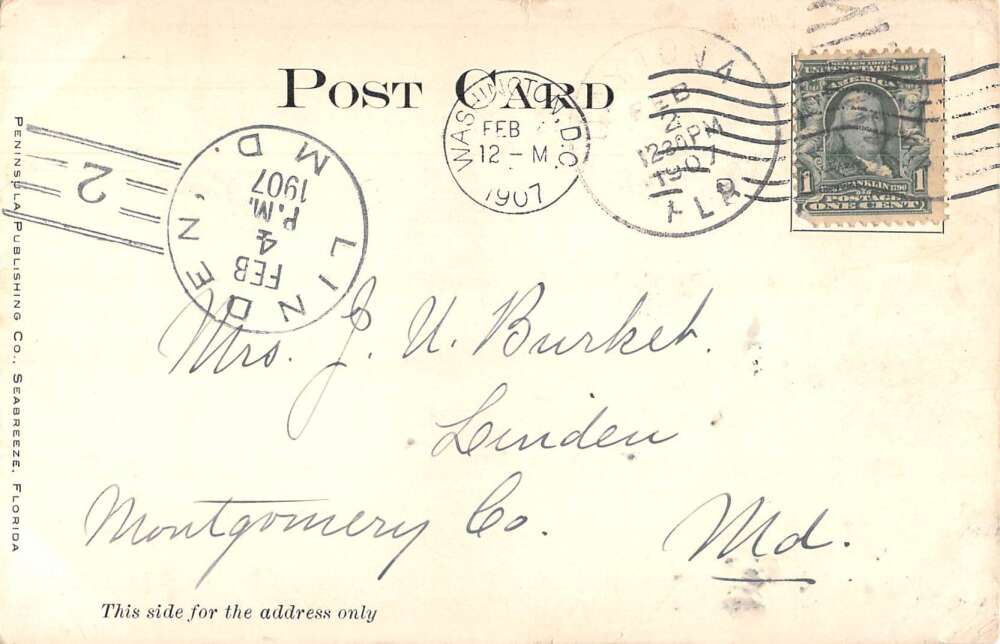 POST CARD
WASHINGTON, D.C.
FEB
12 - M
1907
FEB
2
12-30PM
1907
SERIES 1902
UNITED STATES OF
AMERICA
1 1
POSTAGE
ONE CENT
2
LINDEN, MD.
FEB
4
P.M.
1907
Mrs. J. U. Burket.
Linden
Montgomery Co. Md.
This side for the address only
PENINSULA PUBLISHING CO., SEABREEZE, FLORIDA